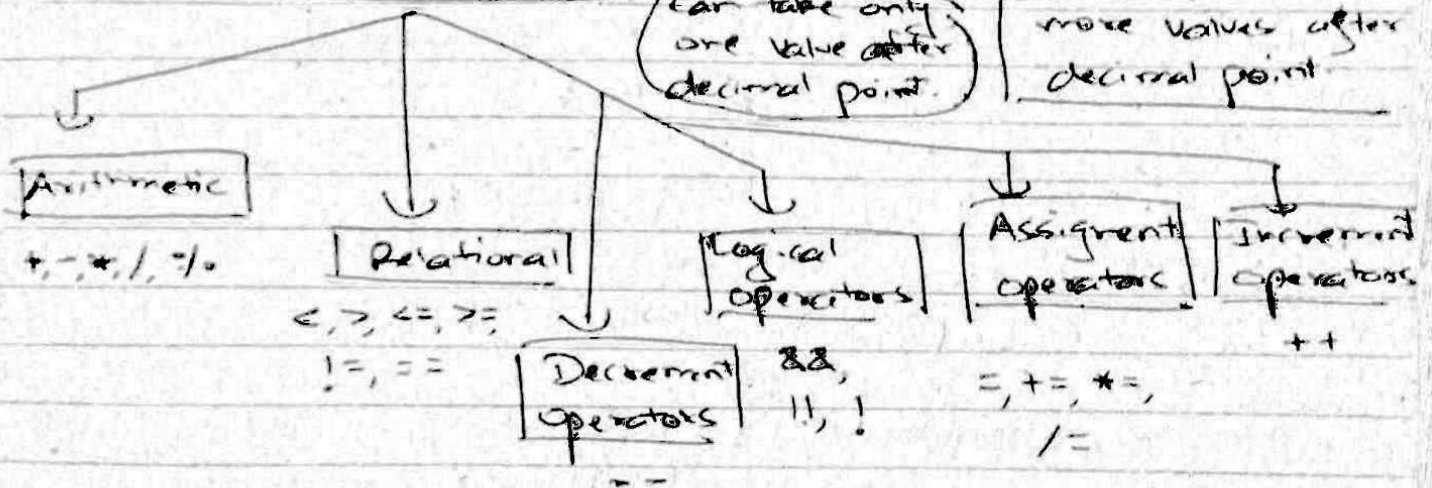 can take only
one value after
decimal point.
more values after
decimal point.
Arithmetic
+, -, *, /, %
Relational
<, >, <=, >=,
!=, ==
Decrement
operators
--
Logical
operators
&&,
||, !
Assignment
operators
=, +=, *=,
/=
Increment
operators.
++